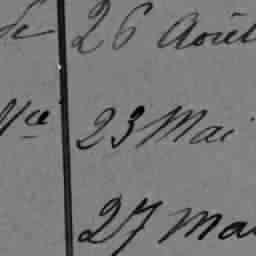 26 Août
23 Mai
27 Mai